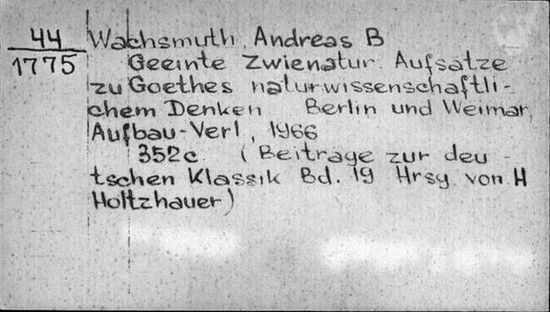 44 Wachsmuth, Andreas B
1775 Geeinte Zwienatur. Aufsatze
zu Goethes naturwissenschaftli-
chem Denken Berlin und Weimar,
Aufbau-Verl, 1966
352c. (Beitrage zur deu-
tschen Klassik Bd. 19 Hrsg von H
Holtzhauer)